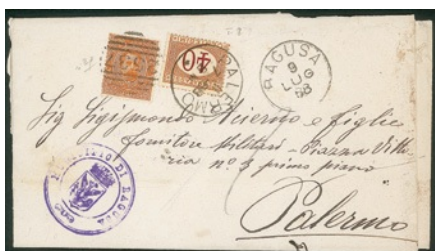 3537
40
PALERMO
RAGUSA
9
LUG
88
Sig Sigismondo e figlio
fornitore Militari - Piazza Vitto
ria n° 3 primo piano
Palermo
MUNICIPIO DI RAGUSA